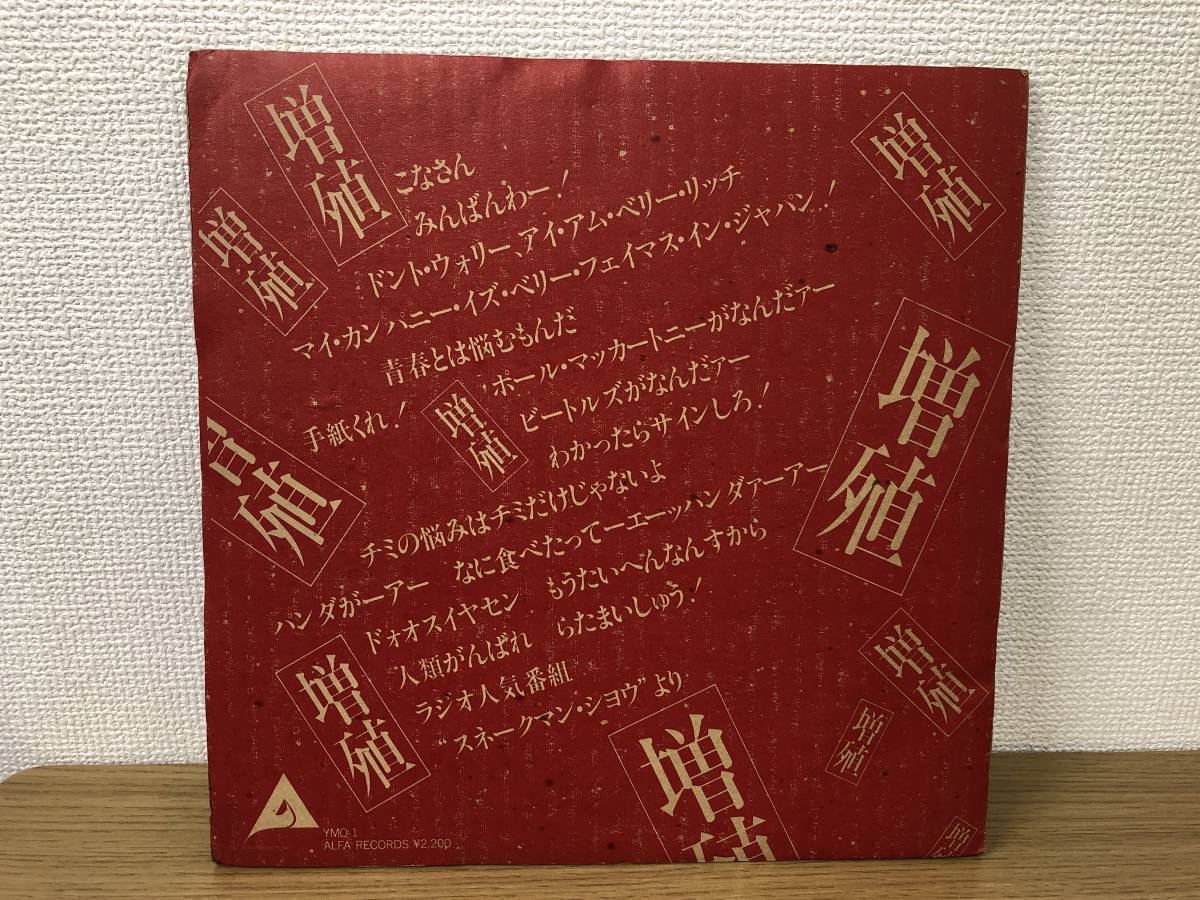 増殖
増殖
増殖
こなさん
みんばんわー!
ドント・ウォリー、アイ・アム・ベリー・リッチ
マイ・カンパニー・イズ・ベリー・フェイマス・イン・ジャパン!
青春とは悩むもんだ
手紙くれ!
ポール・マッカートニーがなんだァー
ビートルズがなんだァー
わかったらサインしろ!
増殖
増殖
増殖
チミの悩みはチミだけじゃないよ
パンダがーアー なに食べたってーエーッパンダァーアー
ドォオスイヤセン もうたいへんなんすから
人類がんばれ らたまいしゅう!
ラジオ人気番組
“スネークマン・ショウ”より
増殖
増殖
増殖
増殖
増殖
YMO-1
ALFA RECORDS ¥2,200